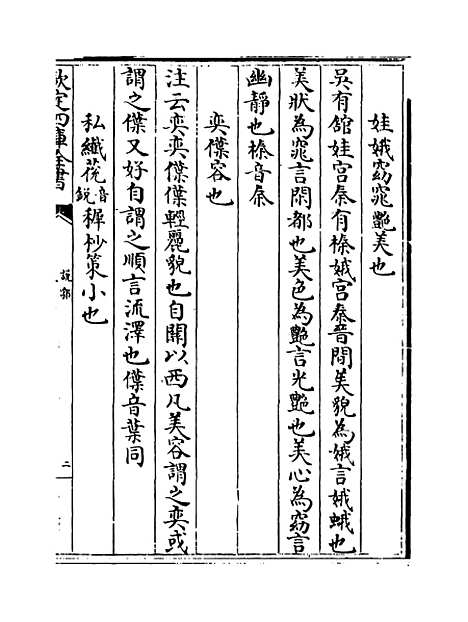 娃娥窈窕艷美也
吳有舘娃宮秦有㯃娥宮秦晉間美貌為娥言娥蛾也
美狀為窕言閑都也美色為艷言光艷也美心為窈言
幽靜也㯃音七
奕僷容也
注云奕奕僷僷輕麗貌也自關以西凡美容謂之奕或
謂之僷又好自謂之順言流澤也僷音葉同
私纖莌音銳稺杪策小也
欽定四庫全書
說郛
二